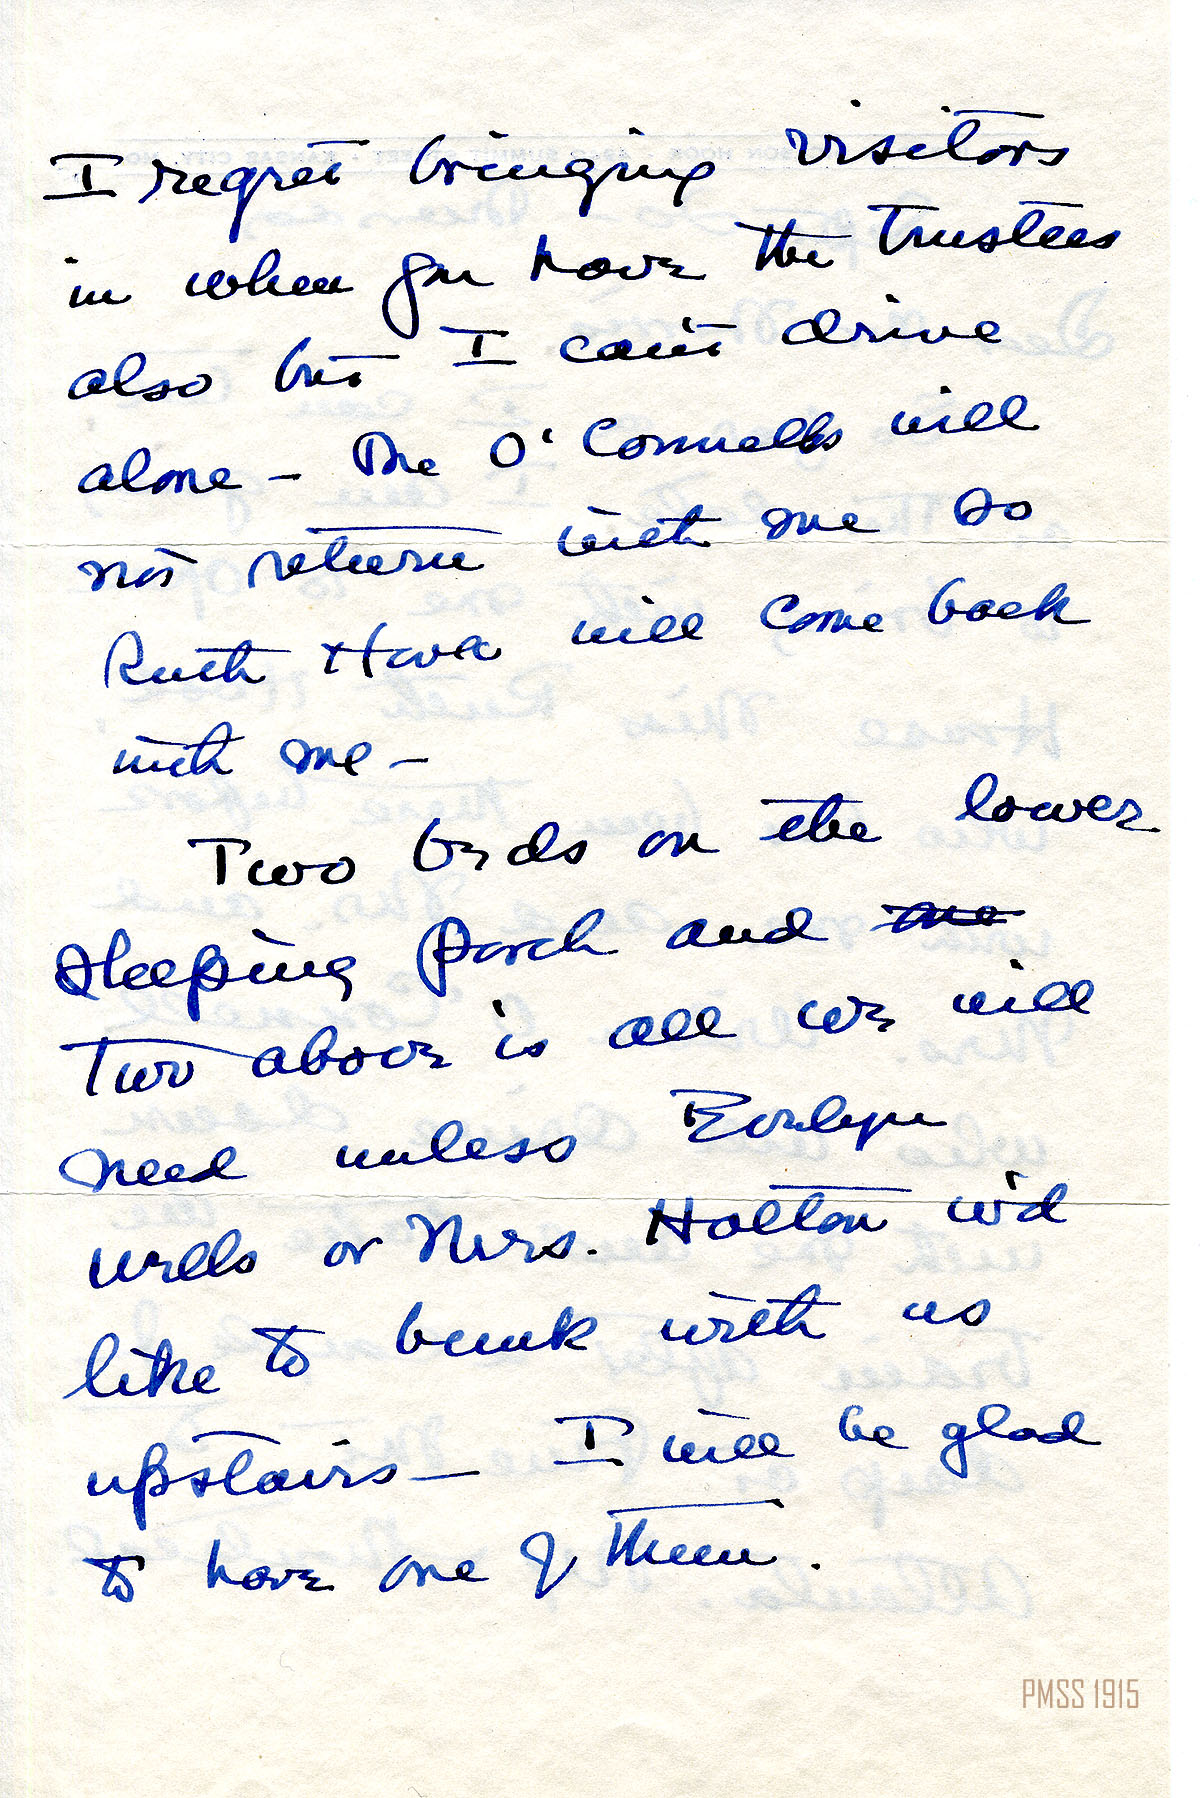 I regret bringing visitors
in when you have the Trustees
also but I can't drive
alone – The O'Connells will
not return with me so
Ruth will come back
with me –
Two beds on the lower
sleeping porch and
two above is all we will
need unless Evelyn
Wells or Mrs. Holton w'd
like to bunk with us
upstairs – I will be glad
to have one of them.
PMSS 1915